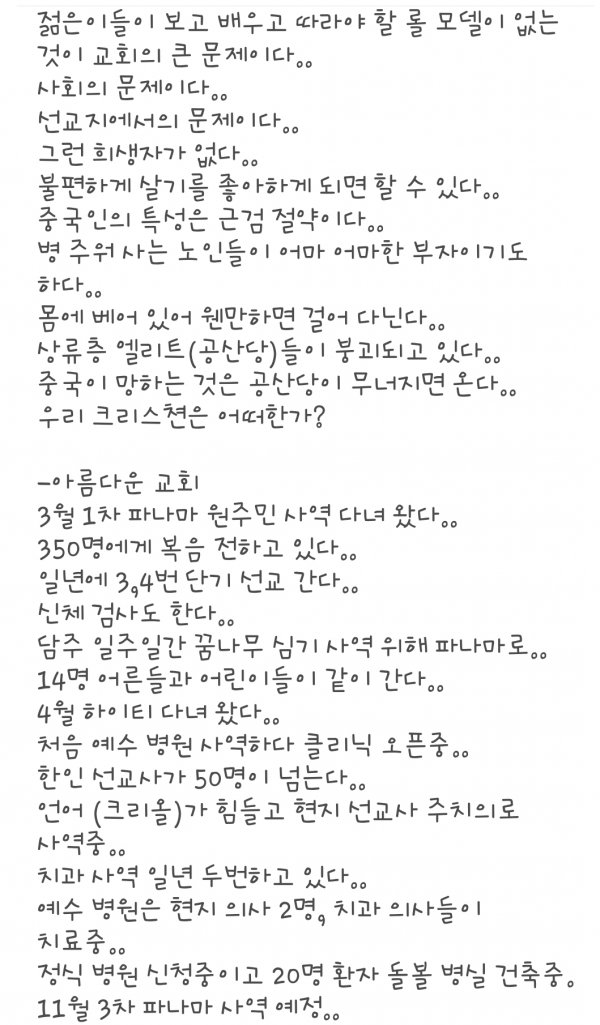 젊은이들이 보고 배우고 따라야 할 롤 모델이 없는
것이 교회의 큰 문제이다..
사회의 문제이다..
선교지에서의 문제이다..
그런 희생자가 없다..
불편하게 살기를 좋아하게 되면 할 수 있다..
중국인의 특성은 근검 절약이다..
병 주워 사는 노인들이 어마 어마한 부자이기도
하다..
몸에 베어 있어 웬만하면 걸어 다닌다..
상류층 엘리트(공산당)들이 붕괴되고 있다..
중국이 망하는 것은 공산당이 무너지면 온다..
우리 크리스쳔은 어떠한가?

-아름다운 교회
3월 1차 파나마 원주민 사역 다녀 왔다..
350명에게 복음 전하고 있다..
일년에 3,4번 단기 선교 간다..
신체 검사도 한다..
담주 일주일간 꿈나무 심기 사역 위해 파나마로..
14명 어른들과 어린이들이 같이 간다..
4월 하이티 다녀 왔다..
처음 예수 병원 사역하다 클리닉 오픈중..
한인 선교사가 50명이 넘는다..
언어 (크리올)가 힘들고 현지 선교사 주치의로
사역중..
치과 사역 일년 두번하고 있다..
예수 병원은 현지 의사 2명, 치과 의사들이
치료중..
정식 병원 신청중이고 20명 환자 돌볼 병실 건축중.
11월 3차 파나마 사역 예정..